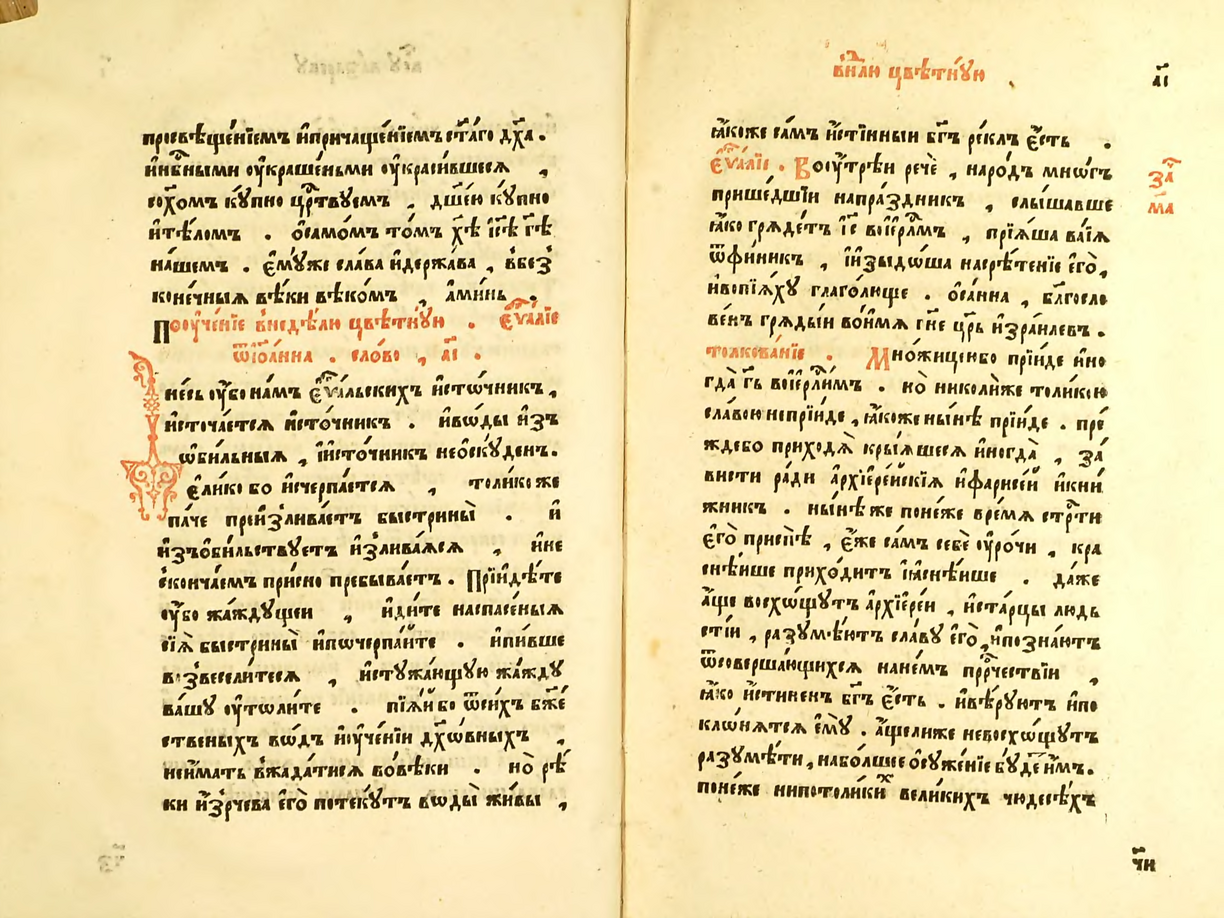 просвѣще́нїемъ и҆причаще́нїемъ ст҃а́го дх҃а .
и҆инѣ́ными оу҆краше́ньми оу҆краси́вшеся ,
со҆хомъ кꙋ́пно црⷭ҇твуемъ , дш҃е́ю кꙋ́пно
и҆тѣ́ломъ . ѡ҆само́мъ то́мъ хр҃ѣ і҆с҃ѣ гд҃ѣ
на́шемъ . є҆мꙋ́же сла́ва и҆держа́ва , вбез
коне́чныя вѣ́ки вѣко́мъ , а҆ми́нь .
Пооуче́нїе внедѣ́лю цвѣ́тнꙋю . є҆ѵⷢ҇а́лїе
ѿїѡ҆а́нна . сло́во , а҃і .
Дне́сь оу҆́бо на́мъ є҆ѵⷢ҇а́льскихъ и҆сто́чникъ ,
и҆сточа́ется и҆сто́чникъ . и҆во́ды и҆зъ
ѡ҆би́льныя , і҆и҆сто́чникъ неѡ҆скꙋ́денъ .
є҆ли́ко бо и҆счерпа́ется , толи́ко же
па́че преи҆злива́етъ быстрины̀ . и҆
и҆зъѡ҆би́льствуетъ и҆злива́яся , и҆не
сконча́емъ при́сно пребыва́етъ . Прїиди́те
оу҆́бо жа́ждущеи , и҆ди́те наспасе́ныя
сїя̀ быстрины̀ и҆поче́рпа́йте . и҆пи́вше
возвесели́теся , и҆стꙋжа́ющую жа́ждꙋ
ва́шꙋ оу҆толи́те . пїя́й бо ѿси́хъ бж҃е
ственыхъ во́дъ и҆оуче́нїи дх҃о́вныхъ ,
неи҆мать вжада́тися вовѣ́ки . но̀ рѣ́
ки и҆зчре́ва є҆го̀ потекꙋ́тъ во́ды жи́вы ,
внⷣлю цвѣ́тнꙋю
а҃і
ꙗ҆́коже са́мъ и҆́стинныи бг҃ъ ре́клъ є҆́сть .
є҆ѵⷢ҇а́лїе . Вооу҆́трѣи речѐ , наро́дъ мно́гъ
прише́дшїи напра́здникъ , слы́шавше
ꙗ҆́ко гряде́тъ і҆с҃ воі҆ерⷭ҇ли́мъ , прїя́ша ва́їя
ѿфи́никъ , і҆и҆зыдо́ша насрѣ́тенїе є҆го̀ ,
и҆вопїя́хꙋ глаго́люще . ѡ҆са́нна , блг҃осло
ве́нъ гряды́и вои́мя гн҃е цр҃ь и҆зра́илевъ .
толкова́нїе . Мно́жицею бо прїи́де и҆но
гда̀ гд҃ь воі҆ерⷭ҇ли́мъ . но̀ николи́же толи́кою
сла́вою неприи́де , ꙗ҆́коже ны́нѣ прїи́де . пре́
ждебо приходя̀ кры́яшеся и҆ногда̀ , за́
висти ра́ди а҆рхїере́йскїя и҆фарисе́й и҆кни́
жникъ . ны́нѣ же поне́же вре́мя стрⷭ҇ти
є҆го̀ приспѣ̀ , є҆́же са́мъ себѣ̀ оу҆рочѝ , кра
снѣ́ише прихо́дитъ і҆я҆снѣ́ише . да́же
а҆́ще восхо́щутъ а҆рхїере́и , и҆ста́рцы лю́дь
стїи , разꙋмѣ́ютъ сла́вꙋ є҆го̀ , и҆позна́ютъ
ѿсоверша́ющихся нане́мъ прⷪ҇ро́чествїи ,
ꙗ҆́ко и҆́стиненъ бг҃ъ є҆́сть . и҆вѣ́руютъ и҆по
кло́нятся є҆мꙋ̀ . а҆́щелиже невосхо́щутъ
разꙋмѣ́ти , набо́лшее ѡ҆сꙋже́нїе бꙋ́де и҆́мъ .
поне́же нипотоли́кихъ вели́кихъ чюдесѣ́хъ
зач҃
м҃а
ч҃и